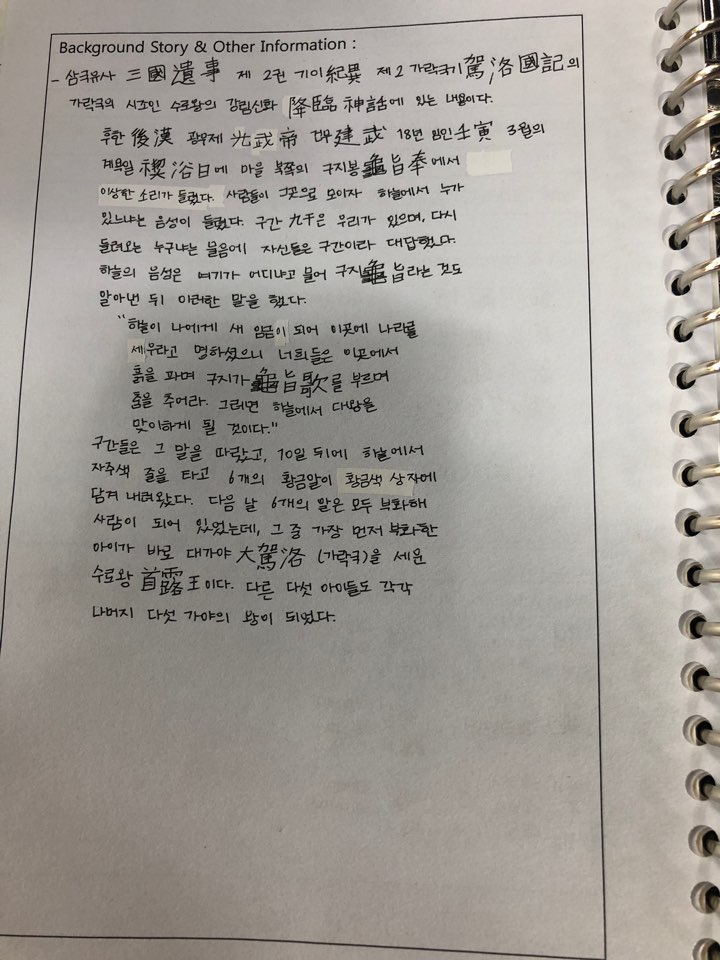 Background Story & Other Information :
- 삼국유사 三國遺事 제 2권 기이紀異 제2 가락국기 駕洛國記의
가락국의 시조인 수로왕의 강림신화 降臨神話에 있는 내용이다.
후한 後漢 광무제 光武帝 建武 18년 임인壬寅 3월의
계욕일 禊浴日에 마을 북쪽의 구지봉龜旨峯에서
이상한 소리가 들렸다. 사람들이 그곳으로 모이자 하늘에서 누가
있느냐는 음성이 들렸다. 구간 九干은 우리가 있으며, 다시
들려오는 누구냐는 물음에 자신들은 구간이라 대답했다.
하늘의 음성은 여기가 어디냐고 물어 구지龜旨라는 것도
알아낸 뒤 이러한 말을 했다.
"하늘이 나에게 새 임금이 되어 이곳에 나라를
세우라고 명하셨으니 너희들은 이곳에서
흙을 파며 구지가 龜旨歌를 부르며
춤을 추어라. 그러면 하늘에서 대왕을
맞이하게 될 것이다."
구간들은 그 말을 따랐고, 10일 뒤에 하늘에서
자주색 줄을 타고 6개의 황금알이 황금색 상자에
담겨 내려왔다. 다음 날 6개의 알은 모두 부화해
사람이 되어 있었는데, 그 중 가장 먼저 부화한
아이가 바로 대가야 大駕洛 (가락국)을 세운
수로왕 首露王이다. 다른 다섯 아이들도 각각
나머지 다섯 가야의 왕이 되었다.